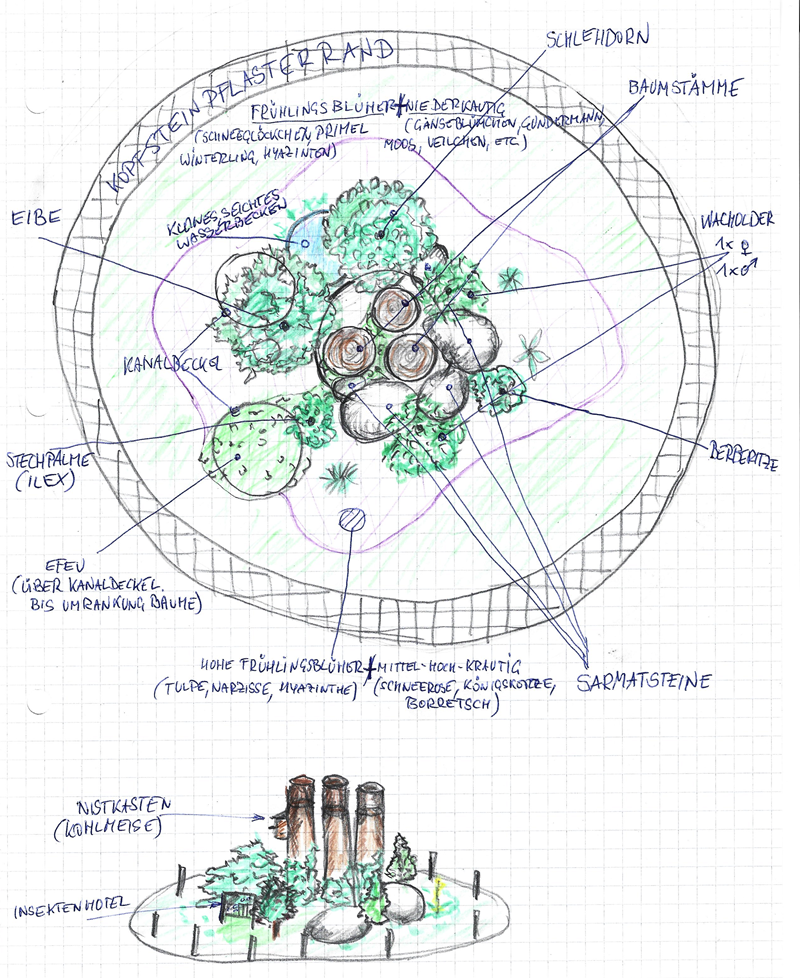 SCHLEHDORN
KOPFSTEINPFLASTERRAND
BAUMSTÄMME
FRÜHLINGSBLÜHER + NIEDERKAUTIG
(SCHNEEGLÖCKCHEN, PRIMEL
WINTERLING, HYAZINTEN)
(GÄNSEBLÜMCHEN, GUNDERMANN,
MOOS, VEILCHEN, ETC)
EIBE
KLEINES, SEICHTES
WASSERBECKEN
WACHOLDER
1x ♀
1x ♂
KANALDECKEL
STECHPALME
(ILEX)
BERBERITZE
EFEU
(ÜBER KANALDECKEL.
BIS UMRANKUNG BÄUME)
HOHE FRÜHLINGSBLÜHER + MITTEL-HOCH-KRAUTIG
(TULPE, NARZISSE, HYAZINTHE) (SCHNEEROSE, KÖNIGSKERZE,
BORRETSCH)
SARMATSTEINE
NISTKASTEN
(KOHLMEISE)
INSEKTENHOTEL